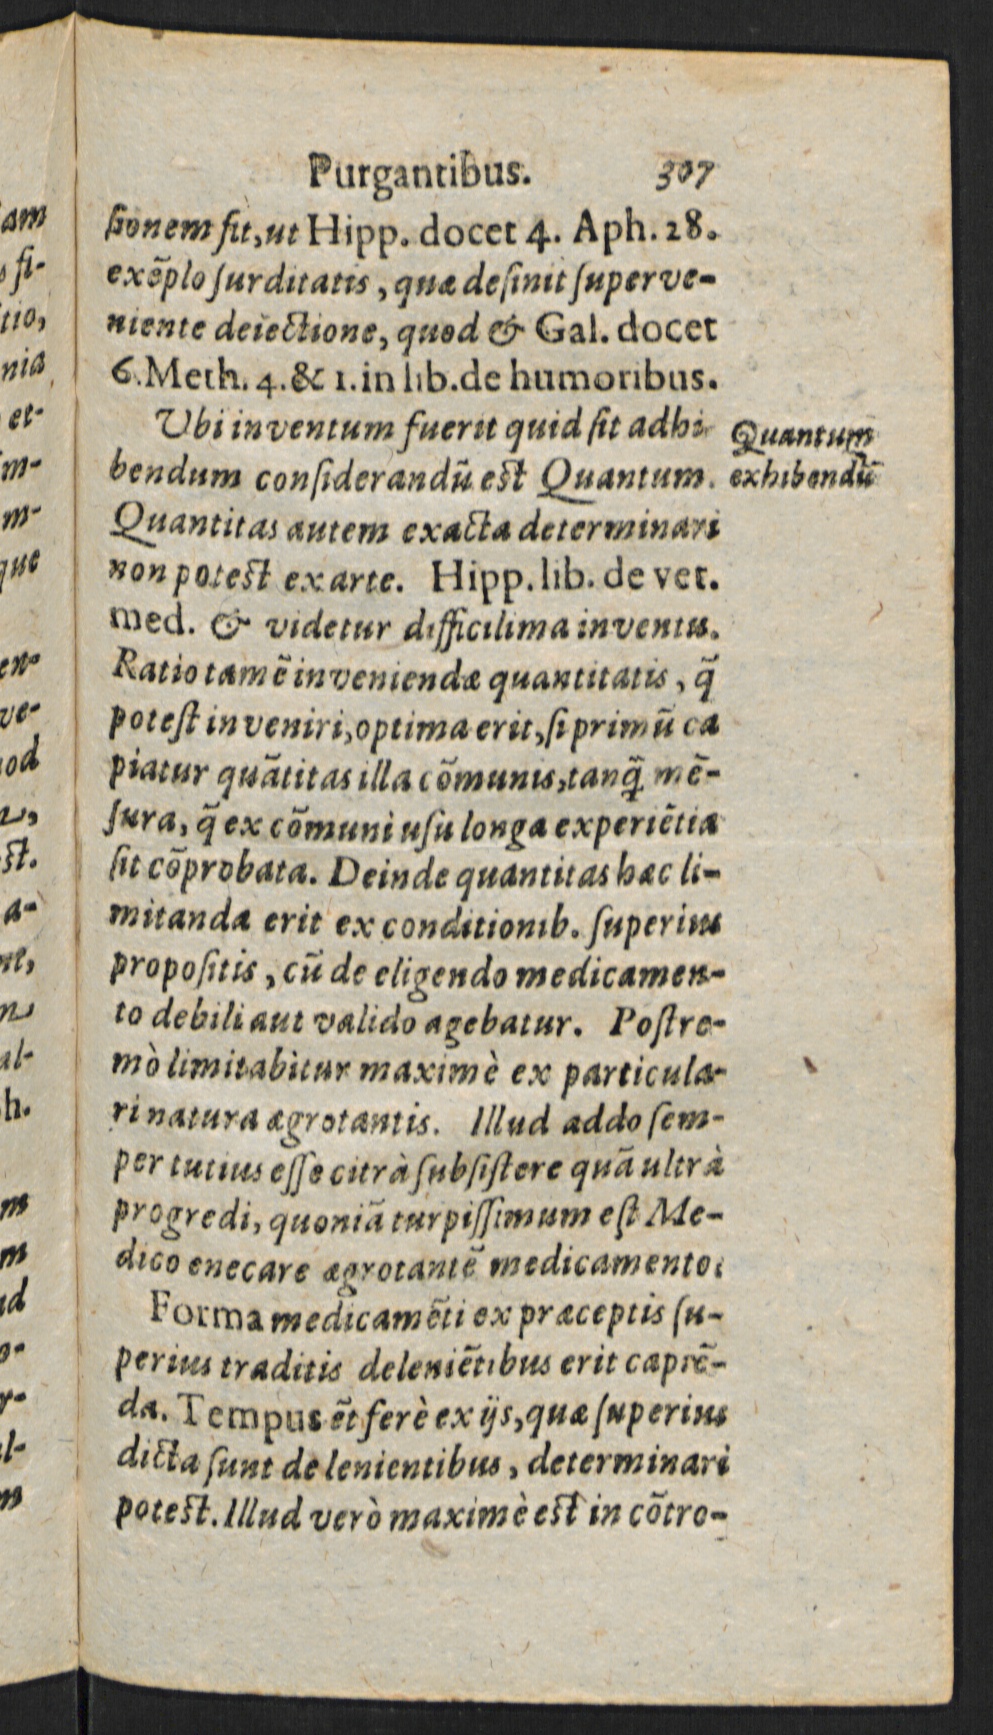 Purgantibus. 307
sionem fit, ut Hipp. docet 4. Aph. 28.
exẽplo surditatis, quæ desinit superve-
niente deiectione, quod & Gal. docet
6. Meth. 4. & 1. in lib. de humoribus.
Ubi inventum fuerit quid sit adhi-
bendum considerandũ est Quantum.
Quantum
exhibendũ
Quantitas autem exacta determinari
non potest ex arte. Hipp. lib. de vet.
med. & videtur difficilima inventu.
Ratio tamẽ inveniendæ quantitatis, q̃
potest inveniri, optima erit, si primũ ca
piatur quãtitas illa cõmunis, tanq̃ mẽ-
sura, q̃ ex cõmuni usu longa experiẽtia
sit cõprobata. Deinde quantitas hæc li-
mitanda erit ex conditionib. superius
propositis, cũ de eligendo medicamen-
to debili aut valido agebatur. Postre-
mò limitabitur maximè ex particula-
ri natura ægrotantis. Illud addo sem-
per tutius esse citrà subsistere quã ultrà
progredi, quoniã turpissimum est Me-
dico enecare ægrotantẽ medicamento.
Forma medicamẽti ex præceptis su-
perius traditis de leniẽtibus erit capiẽ-
da. Tempus ẽt ferè ex ijs, quæ superius
dicta sunt de lenientibus, determinari
potest. Illud verò maximè est in cõtro-
am
si-
tio,
nia
et-
m-
m-
que
en-
ve-
od
st.
a-
al-
h.
m
m